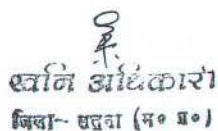 खनि अधिकारी
जिला- सतना (म० प्र०)